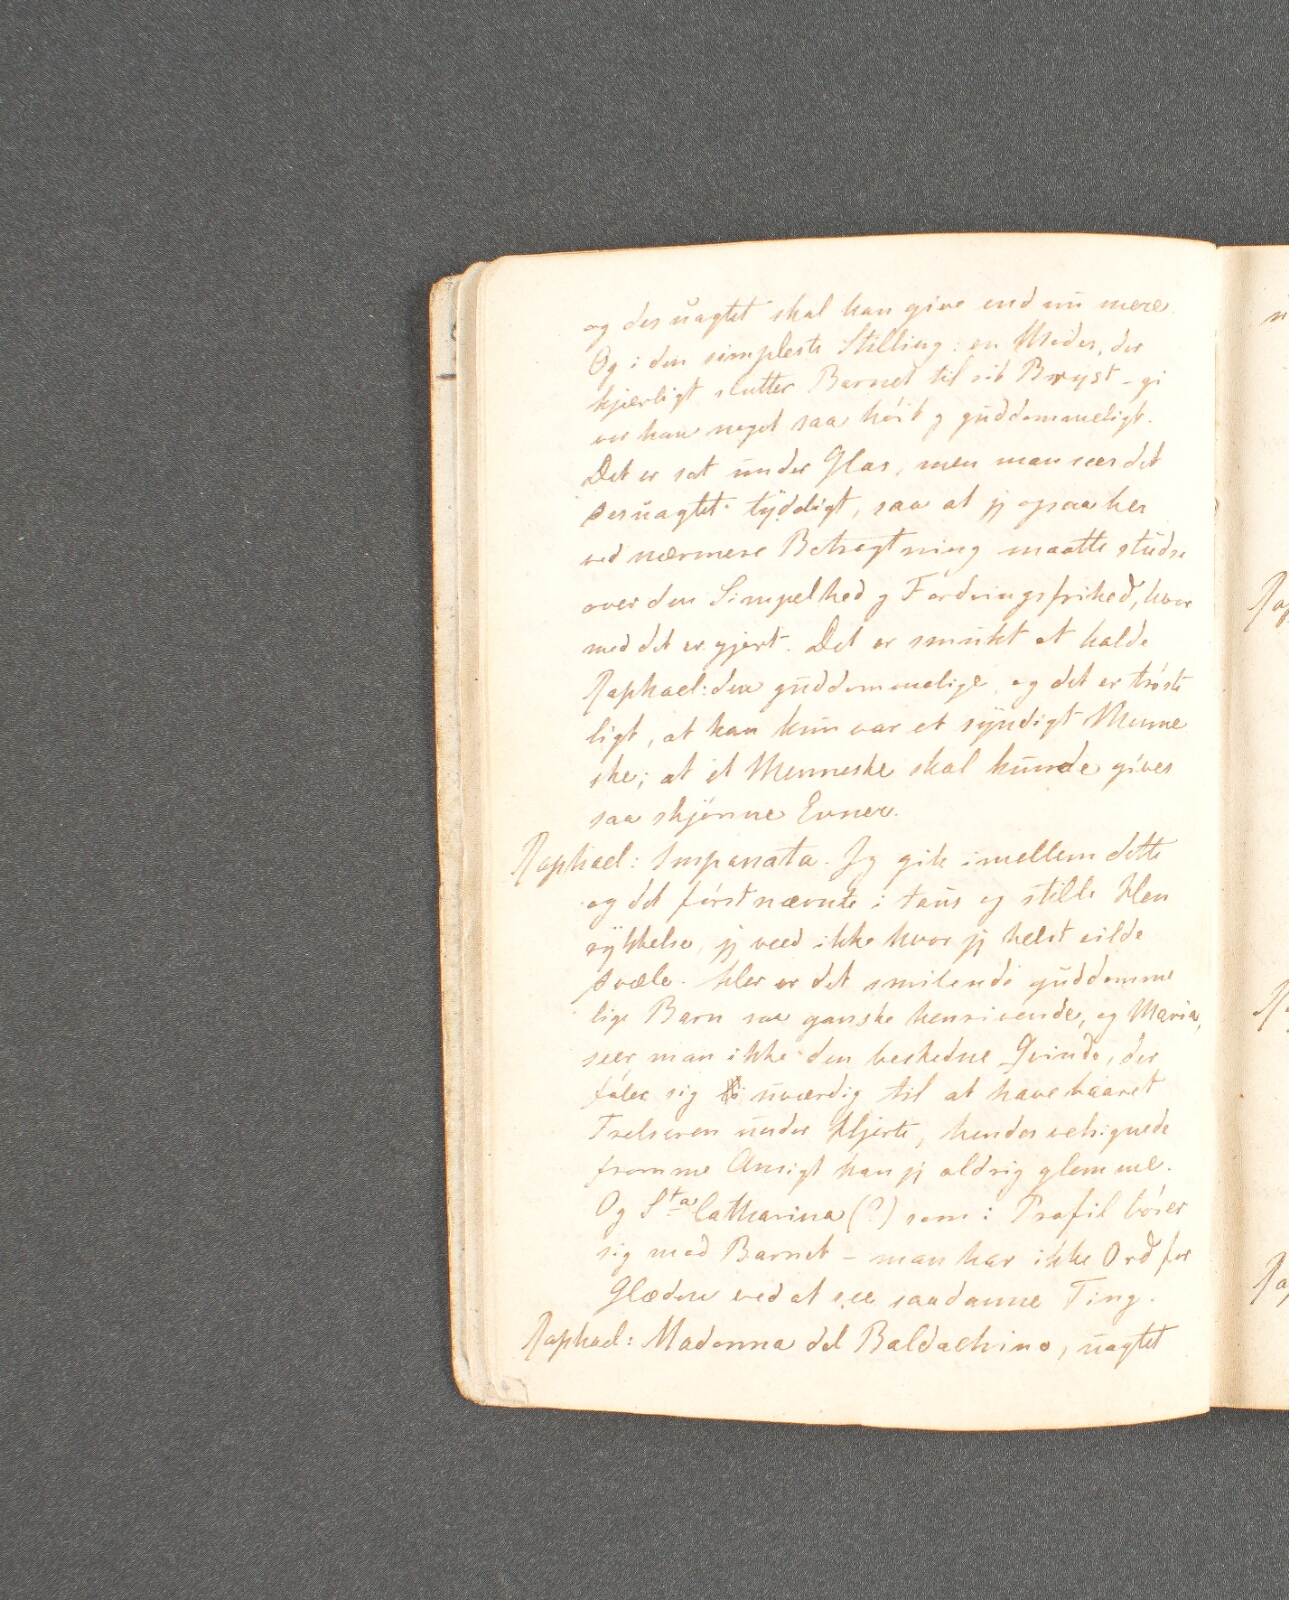 og des uagtet skal han give end nu mere.
Og i den simpleste Stilling: en Moder, der
kjærligt slutter Barnet til sit Bryst – gi
ver han noget saa höit og guddommeligt.
Det er sat under Glas, men man seer det
desuagtet tydeligt, saa at jeg ogsaa her
ved nærmere Betragtning maatte studse
over den Simpelhed og Fordringsfrihed, hvor
med det er gjort. Det er smukt at kalde
Raphael: den guddommelige, og det er tröste
ligt, at han kun var et syndigt Menne
ske; at et Menneske skal kunde gives
saa skjönne Evner.
Raphael: Impanata. Jeg gik imellem dette
og det förstnævnte i taus og stille Hen
rykkelse, jeg veed ikke hvor jeg helst vilde
dvæle. Her er det smilende guddomme
lige Barn saa ganske henrivende, og Maria,
seer man ikke den beskedne Qvinde, der
föler sig uværdig til at have baaret
Frelseren under Hjerte, hendes velsignede
fromme Ansigt kan jeg aldrig glemme.
Og Sta Catharina (?) som i Profil böier
sig mod Barnet – man har ikke Ord for
Glæden ved at see saadanne Ting.
Raphael: Madonna del Baldachino, uagtet